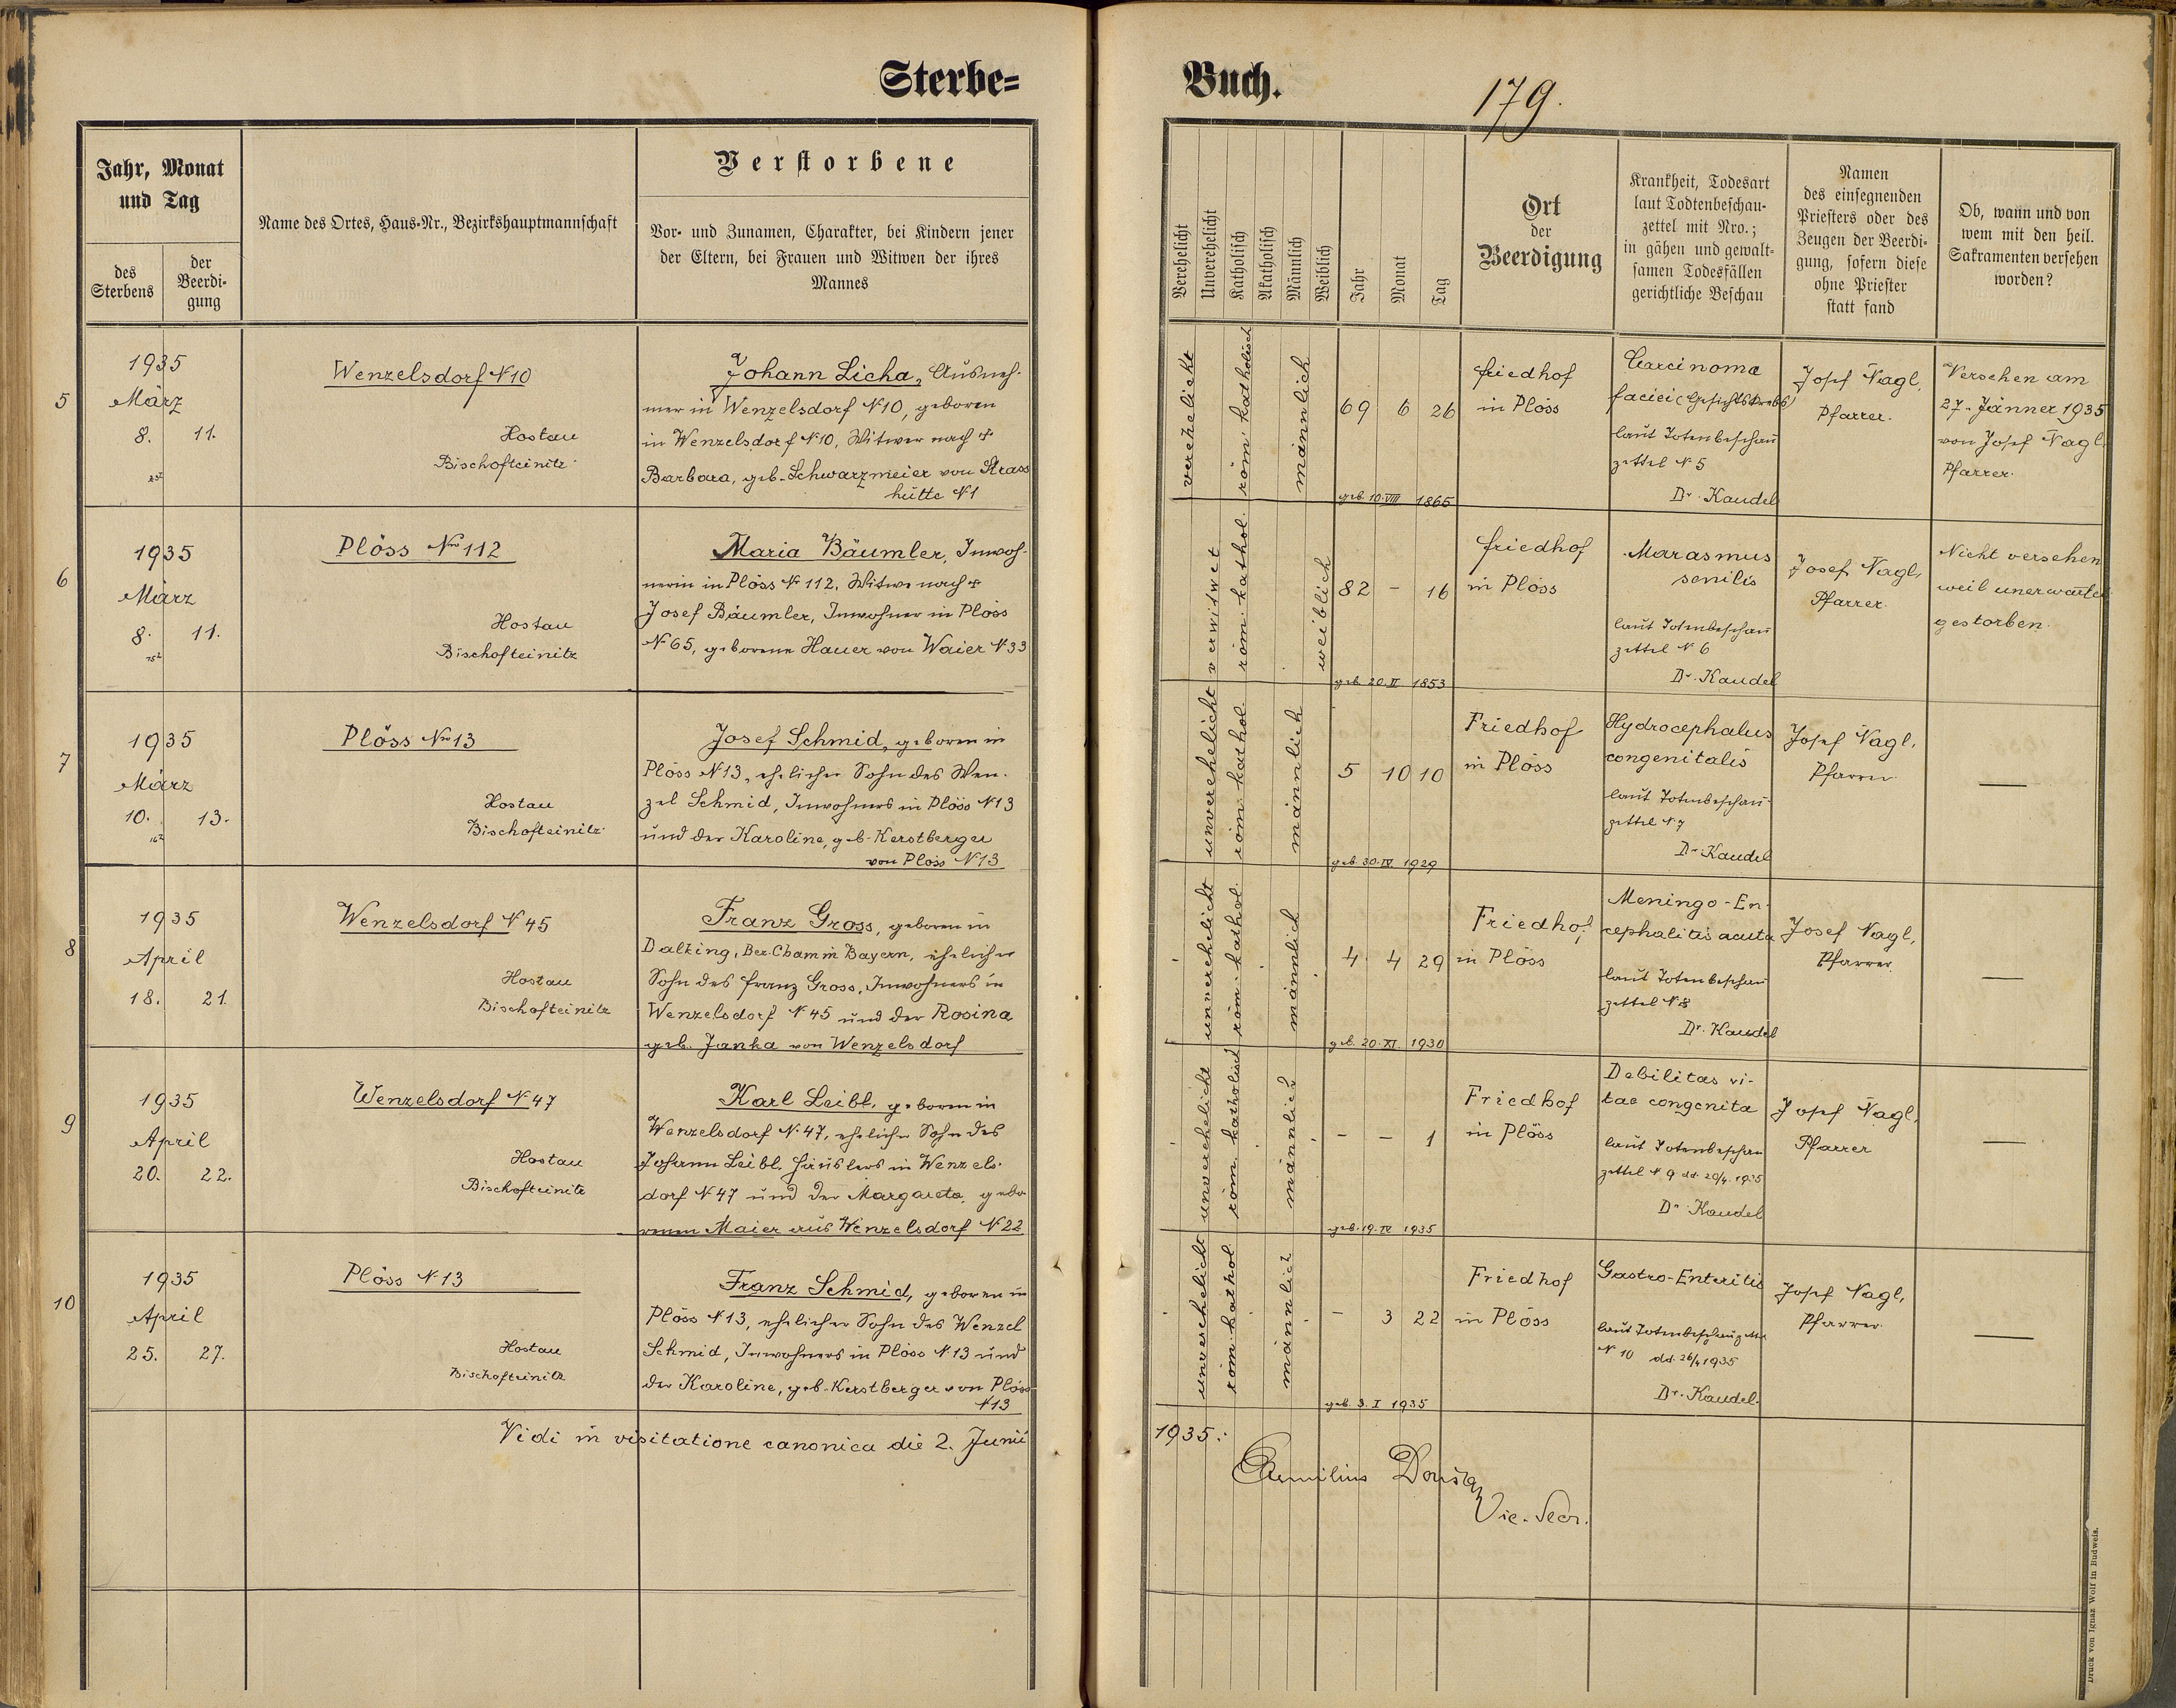 Sterbe=
Buch.
179.
Jahr, Monat
und Tag
des
Sterbens
der
Beerdi-
gung
Name des Ortes, Haus-Nr., Bezirkshauptmannschaft
Verstorbene
Vor- und Zunamen, Charakter, bei Kindern jener
der Eltern, bei Frauen und Witwen der ihres
Mannes
Verehelicht
Unverehelicht
Katholisch
Akatholisch
Männlich
Weiblich
Jahr
Monat
Tag
Ort
der
Beerdigung
Krankheit, Todesart
laut Todtenbeschau-
zettel mit Nro.;
in gähen und gewalt-
samen Todesfällen
gerichtliche Beschau
Namen
des einsegnenden
Priesters oder des
Zeugen der Beerdi-
gung, sofern diese
ohne Priester
statt fand
Ob, wann und von
wem mit den heil.
Sakramenten versehen
worden?
5
1935
März
8. 11.
Wenzelsdorf N 10
Hostau
Bischofteinitz
Johann Licha, Ausneh-
mer in Wenzelsdorf N 10, geboren
in Wenzelsdorf N 10, Witwer nach †
Barbara, geb. Schwarzmeier von Strass
hütte N 1
verehelicht
röm katholisch
männlich
69 6 26
geb. 10. VIII 1865
friedhof
in Plöss
Carcinoma
faciei (Gesichtskrebs)
laut Totenbeschau
zettel N 5
Dr. Kaudel
Josef Nagl,
Pfarrer.
Versehen am
27. Jänner 1935
von Josef Nagl,
Pfarrer.
6
1935
März
8. 11.
Plöss Nro 112
Hostau
Bischofteinitz
Maria Bäumler, Inwoh-
nerin in Plöss N 112, Witwe nach †
Josef Bäumler, Inwohner in Plöss
N 65, geborene Hauer von Waier N 33
verwitwet
röm. kathol.
weiblich
82 – 16
geb. 20. II 1853
friedhof
in Plöss
Marasmus
senilis
laut Totenbeschau
zettel N 6
Dr. Kaudel
Josef Nagl,
Pfarrer.
Nicht versehen
weil unerwartet
gestorben.
7
1935
März
10. 13.
Plöss Nro 13
Hostau
Bischofteinitz
Josef Schmid, geboren in
Plöss N 13, ehelicher Sohn des Wen-
zel Schmid, Inwohners in Plöss N 13
und der Karoline, geb. Kerstberger
von Plöss N 13
unverehelicht
röm. kathol.
männlich
5 10 10
geb. 30. IV 1929
Friedhof
in Plöss
Hydrocephalus
congenitalis
laut Totenbeschau-
zettel N 7
Dr. Kaudel
Josef Nagl,
Pfarrer
—
8
1935
April
18. 21.
Wenzelsdorf N 45
Hostau
Bischofteinitz
Franz Gross, geboren in
Dalking, Bez. Cham in Bayern, ehelicher
Sohn des Franz Gross, Inwohners in
Wenzelsdorf N 45 und der Rosina
geb. Janka von Wenzelsdorf
unverehelicht
röm. kathol.
männlich
4 4 29
geb. 20. XI. 1930
Friedhof
in Plöss
Meningo-En-
cephalitis acuta
laut Totenbeschau
zettel N 8
Dr. Kaudel
Josef Nagl,
Pfarrer.
—
9
1935
April
20. 22.
Wenzelsdorf N 47
Hostau
Bischofteinitz
Karl Leibl, geboren in
Wenzelsdorf N. 47, ehelicher Sohn des
Johann Leibl, Häuslers in Wenzels-
dorf N 47 und der Margareta, gebo-
renen Maier aus Wenzelsdorf N 22
unverehelicht
röm. katholisch
männlich
– – 1
geb. 19. IV 1935
Friedhof
in Plöss
Debilitas vi-
tae congenita
laut Totenbeschau
zettel N 9 dd. 20/4. 1935
Dr. Kaudel
Josef Nagl,
Pfarrer
—
10
1935
April
25. 27.
Plöss N 13
Hostau
Bischofteinitz
Franz Schmid, geboren in
Plöss N 13, ehelicher Sohn des Wenzel
Schmid, Inwohners in Plöss N. 13 und
der Karoline, geb. Kerstberger von Plöss
N 13
unverehelicht
röm. kathol.
männlich
– 3 22
geb. 3. I 1935
Friedhof
in Plöss
Gastro-Enteritis
laut Totenbeschauzettel
N 10 dd. 26/4 1935
Dr. Kaudel.
Josef Nagl,
Pfarrer.
—
Vidi in visitatione canonica die 2. Junii
1935:
Aemilius
Vic. Secr.
Druck von Ignaz Wolf in Budweis.